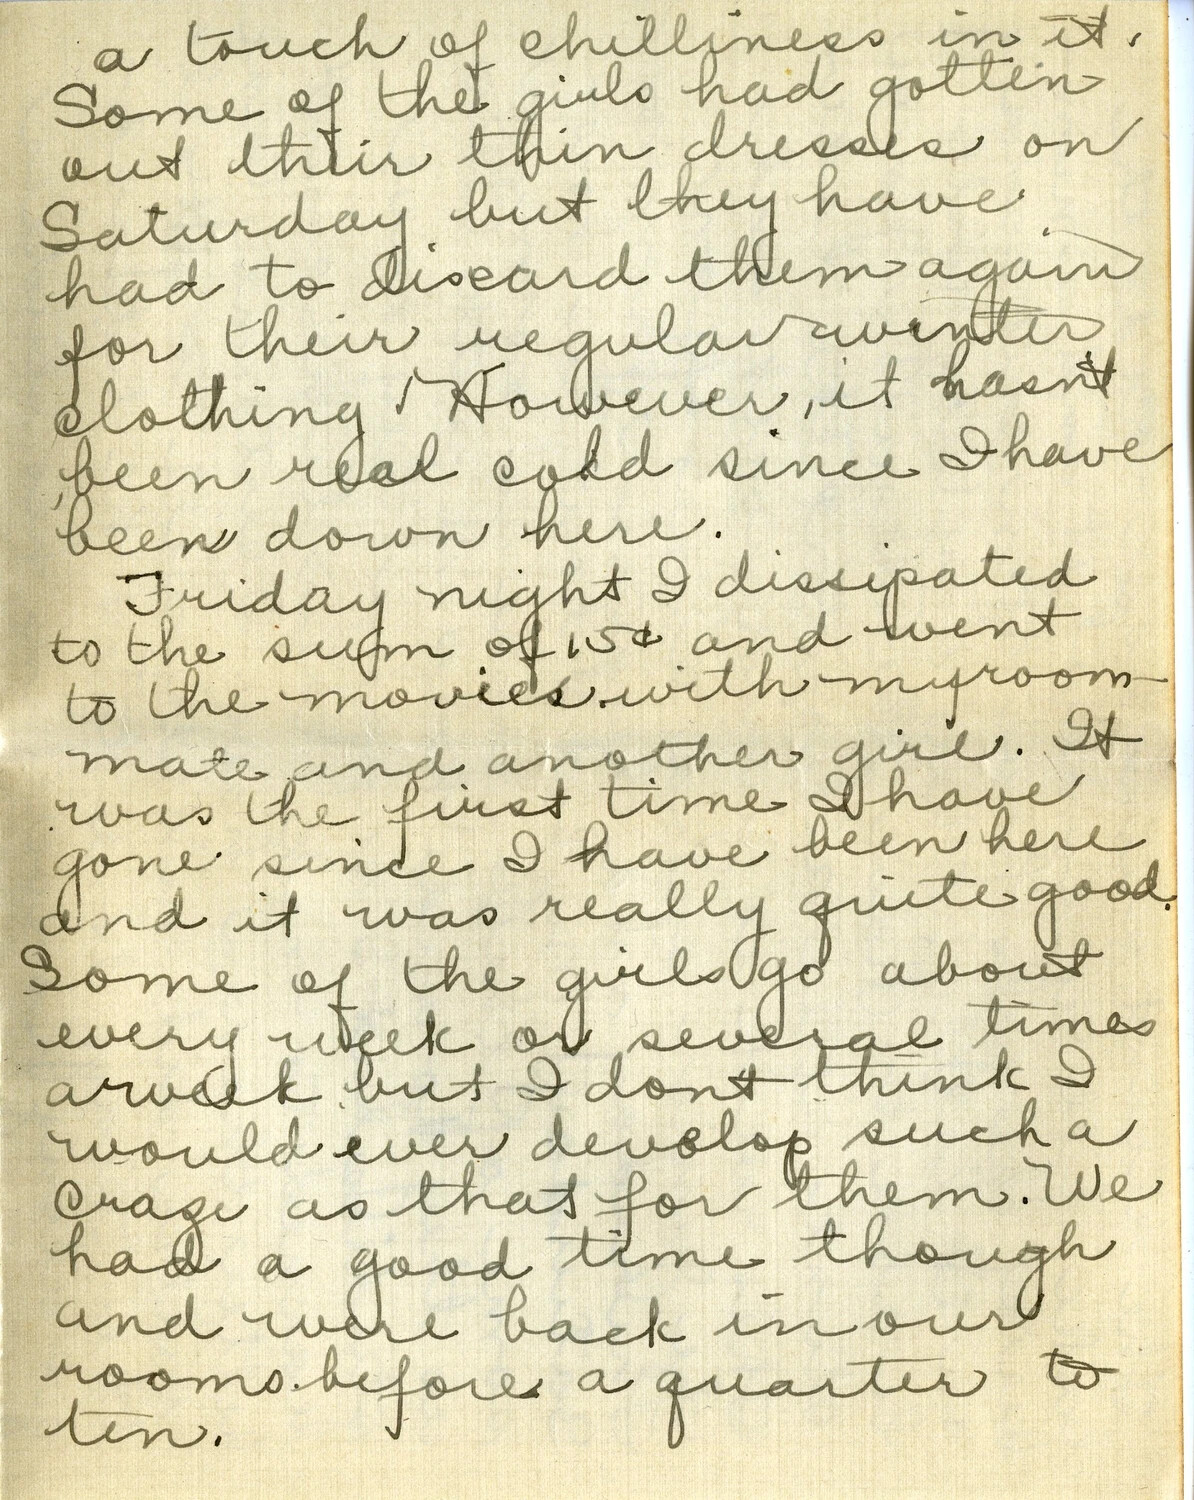 a touch of chilliness in it.
Some of the girls had gotten
out their thin dresses on
Saturday but they have
had to discard them again
for their regular winter
clothing. However, it hasn't
been real cold since I have
been down here.
Friday night I dissipated
to the sum of 15¢ and went
to the movies with my room-
mate and another girl. It
was the first time I have
gone since I have been here
and it was really quite good.
Some of the girls go about
every week or several times
a week but I dont think I
would ever develop such a
craze as that for them. We
had a good time though
and were back in our
rooms before a quarter to
ten.